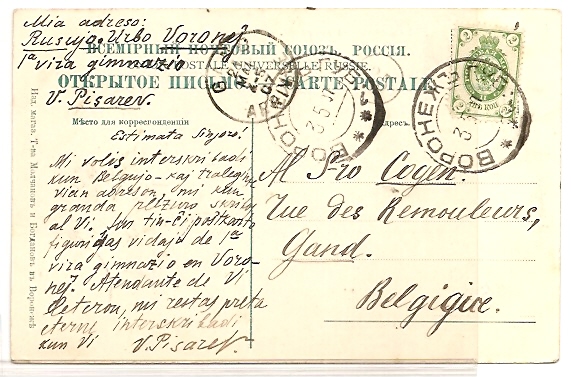 Mia adreso:
Rusujo. Urbo Voronej.
ВСЕМІРНЫЙ ПОЧТОВЫЙ СОЮЗЪ. РОССІЯ.
UNION POSTALE UNIVERSELLE. RUSSIE.
1ª vira gimnazio
ОТКРЫТОЕ ПИСЬМО. CARTE POSTALE.
V. Pisarev.
Мѣсто для корреспонденціи
Адресъ.
Estimata Sinjoro!
Mi volis interskribadi
kun Belgujo kaj
vian adreson, mi kun
granda plezuro skribas
al Vi. Sur tiu-ĉi poŝtkarto
figuriĝas vidajo de 1ª
vira gimnazio en Voro-
nej. Atendante de Vi
leteron, mi restas preta
eterne interskribadi
kun Vi V. Pisarev.
Al S-ro Cogen.
Rue des Remouleurs,
Gand.
Belgique.
ВОРОНЕЖЪ
ВОРОНЕЖЪ
2
2
Изд. магаз. Т-ва Молчановъ и Богдановъ въ Воронежѣ